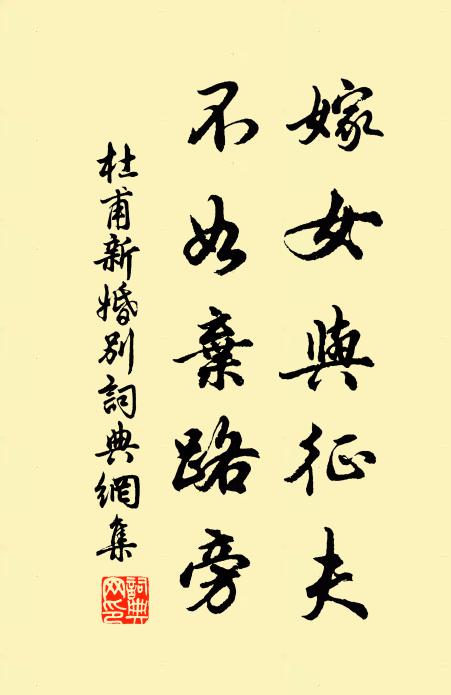 嫁女與征夫
不如棄路旁
杜甫新婚別詞典網集
詞典
網印